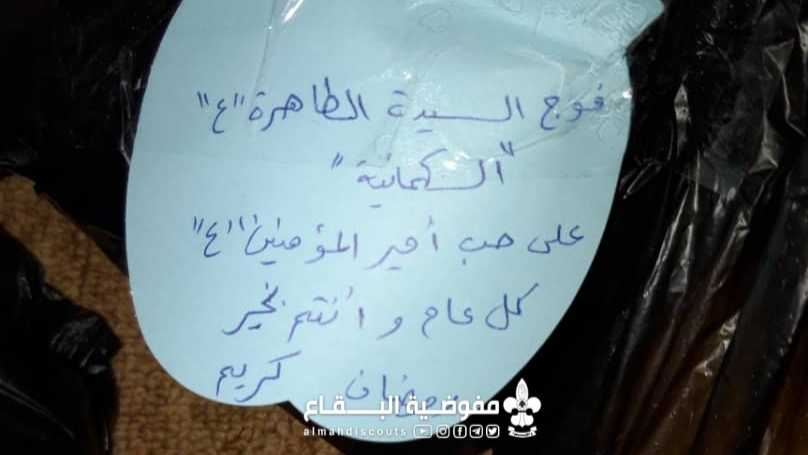 فوج السيدة الطاهرة "ع"
"السكمانية"
على حب أمير المؤمنين "ع"
كل عام و أنتم بخير
رمضان كريم
مفوضية البقاع
almahdiscouts